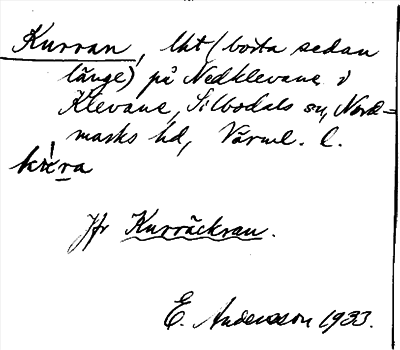 Kurran, tht (borta sedan
länge) på Nedklevane i
Klevane, Silbodals sn, Nord=
marks hd, Värml. l.
Jfr Kurräckran.
E. Andersson 1933.